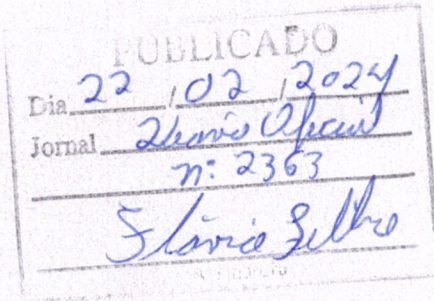 PUBLICADO
Dia 22 / 02 / 2024
Jornal Diário Oficial
nº 2363
Flávia